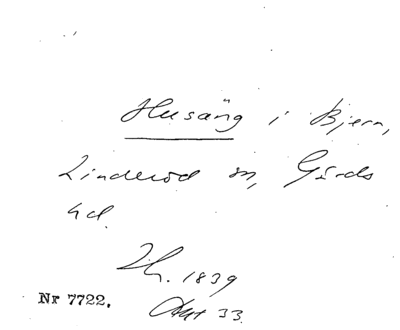 Husäng i Bjern,
Linderöd sn, Gärds
hd.
Lh. 1839
Akt 33.
Nr 7722.